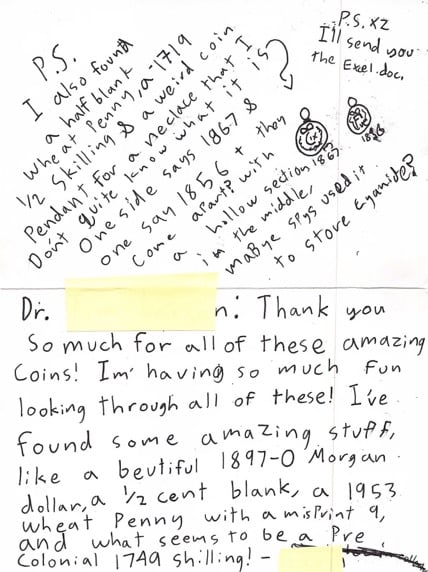 P.S.
I also found
a half blank
wheat Penny, a 1719
1/2 Skilling & a weird coin
Pendant for a neclace that I
Dońt quite know what it is
One side says 1867 &
one say 1856 + they
Come apart with
a hollow section
in the middle,
maBye spys used it
to store cyanide?
1867
1856
P.S. x2
I'll
send you
the Exel.doc.
Dr. n: Thank you
So much for all of these amazing
Coins! Im' having so much fun
looking through all of these! I've
found some amazing stuff,
like a beutiful 1897-O Morgan
dollar, a 1/2 cent blank, a 1953
wheat Penny with a misPrint 9,
and what seems to be a Pre
Colonial 1749 shilling! -